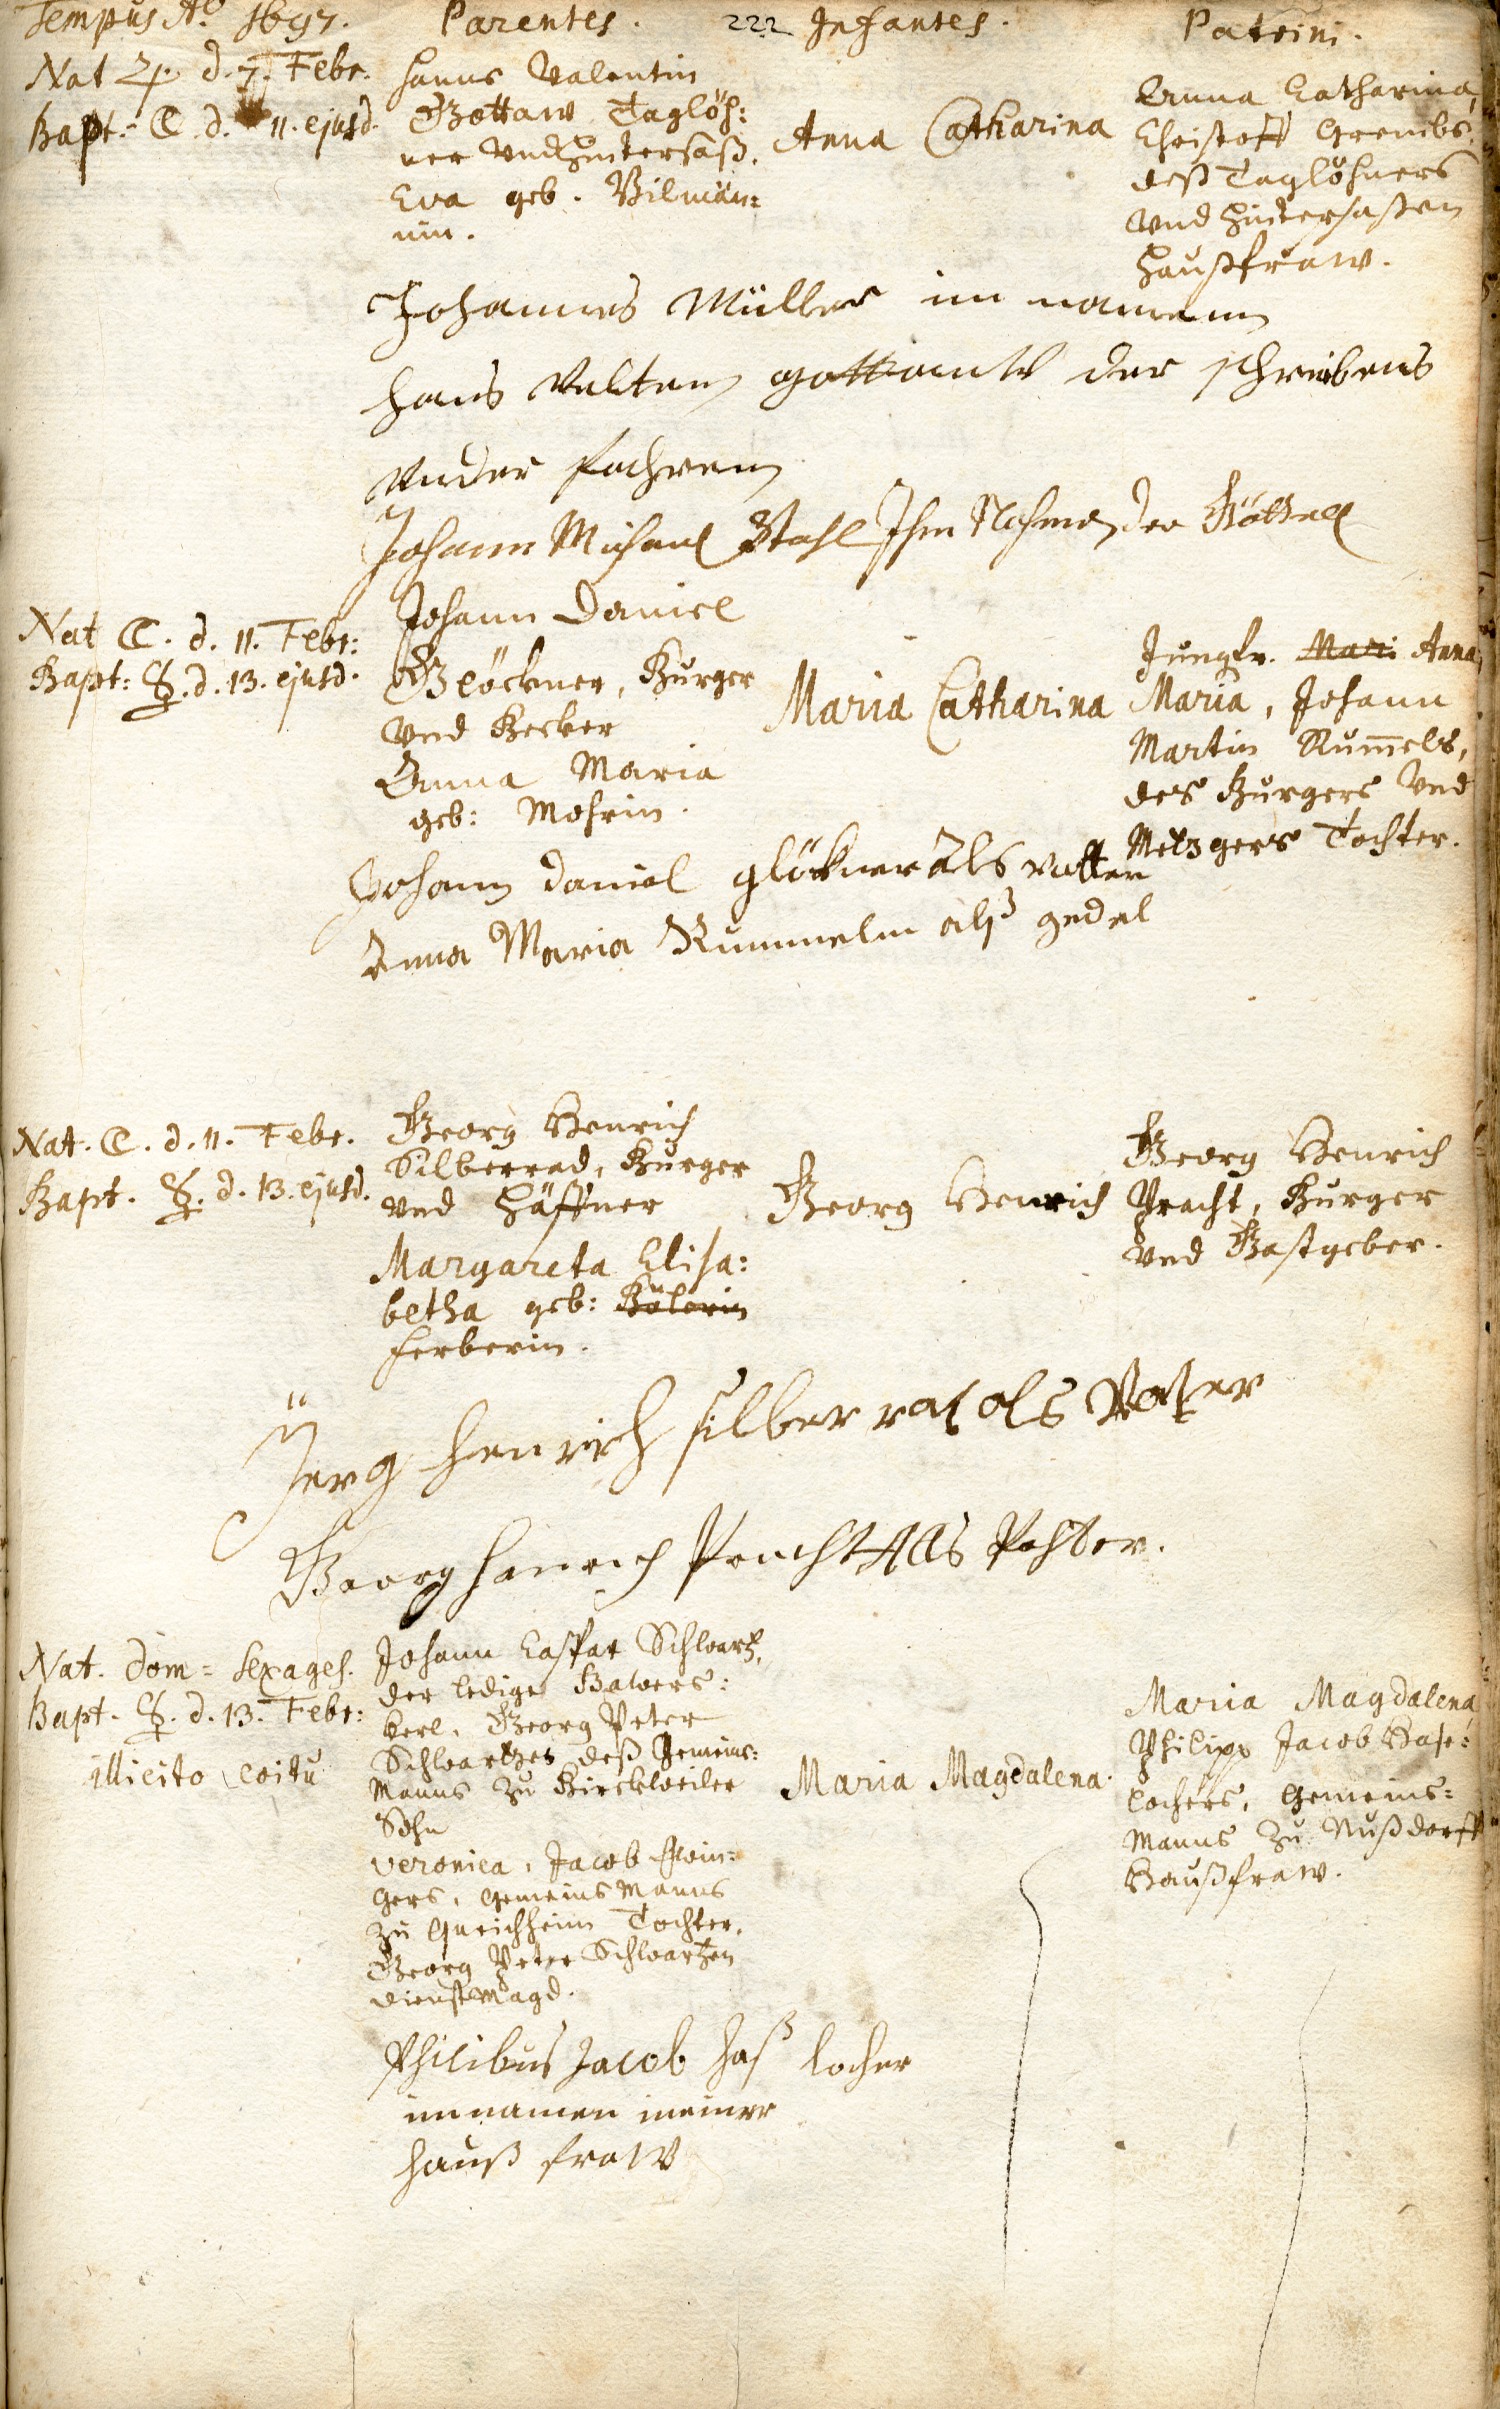 Tempus Aº 1697. Parentes. 222 Infantes. Patrini.
Nat ♃. d. 7. Febr.
Bapt: ☾. d. 11. ejusd.
Hanns Valentin
Gottaw Taglöh:
ner Vnd Hintersaß.
Eva geb. Bilmän:
nin.
Anna Catharina
Anna Catharina,
Christoff Grembs
deß Taglöhners
Vnd Hintersaßen
Haußfraw.
Johannes Müller im namenn
Hans Velten gottauw der schreibens
Vnder fachren
Johann Michael Stahl Ihm Nahmen der Göttel
Nat ☾. d. 11. Febr:
Bapt: ☿. d. 13. ejusd.
Johann Daniel
Glöckner, Burger
Vnd Becker
Anna Maria
geb: Mohrin.
Maria Catharina
Jungfr. Mari Anna
Maria, Johann
Martin Rum̄els,
des Burgers Vnd
Metzgers Tochter.
Johann Daniel glöckner als vatter
Anna Maria Rummelin alß gedel
Nat. ☾. d. 11. Febr.
Bapt. ☿. d. 13. ejusd.
Georg Henrich
Silberrad, Burger
Vnd Häffner
Margareta Elisa:
betha geb:
Ferberin.
Georg Henrich
Georg Henrich
Pracht, Burger
Vnd Gastgeber.
Jerg Henrich silber rat als Vater
Georg Henrich Pracht Als Pehter.
Nat. Dom= Sexages.
Bapt. ☿. d. 13. Febr:
illicito coitu
Johann Caspar Schwartz,
der ledige Bawers:
kerl, Georg Peter
Schwartzen deß Gemeins:
Manns zu Birckweiler
Sohn
Veronica, Jacob
gers, Gemeins Manns
zu Tochter,
Georg Peter Schwartzen
dienstMagd.
Maria Magdalena
Maria Magdalena
Philipp Jacob Hase:
lochers, Gemeins=
Manns zu Nußdorff
Haußfraw.
Philibus Jacob Haß locher
im namen meiner
hauß fraw